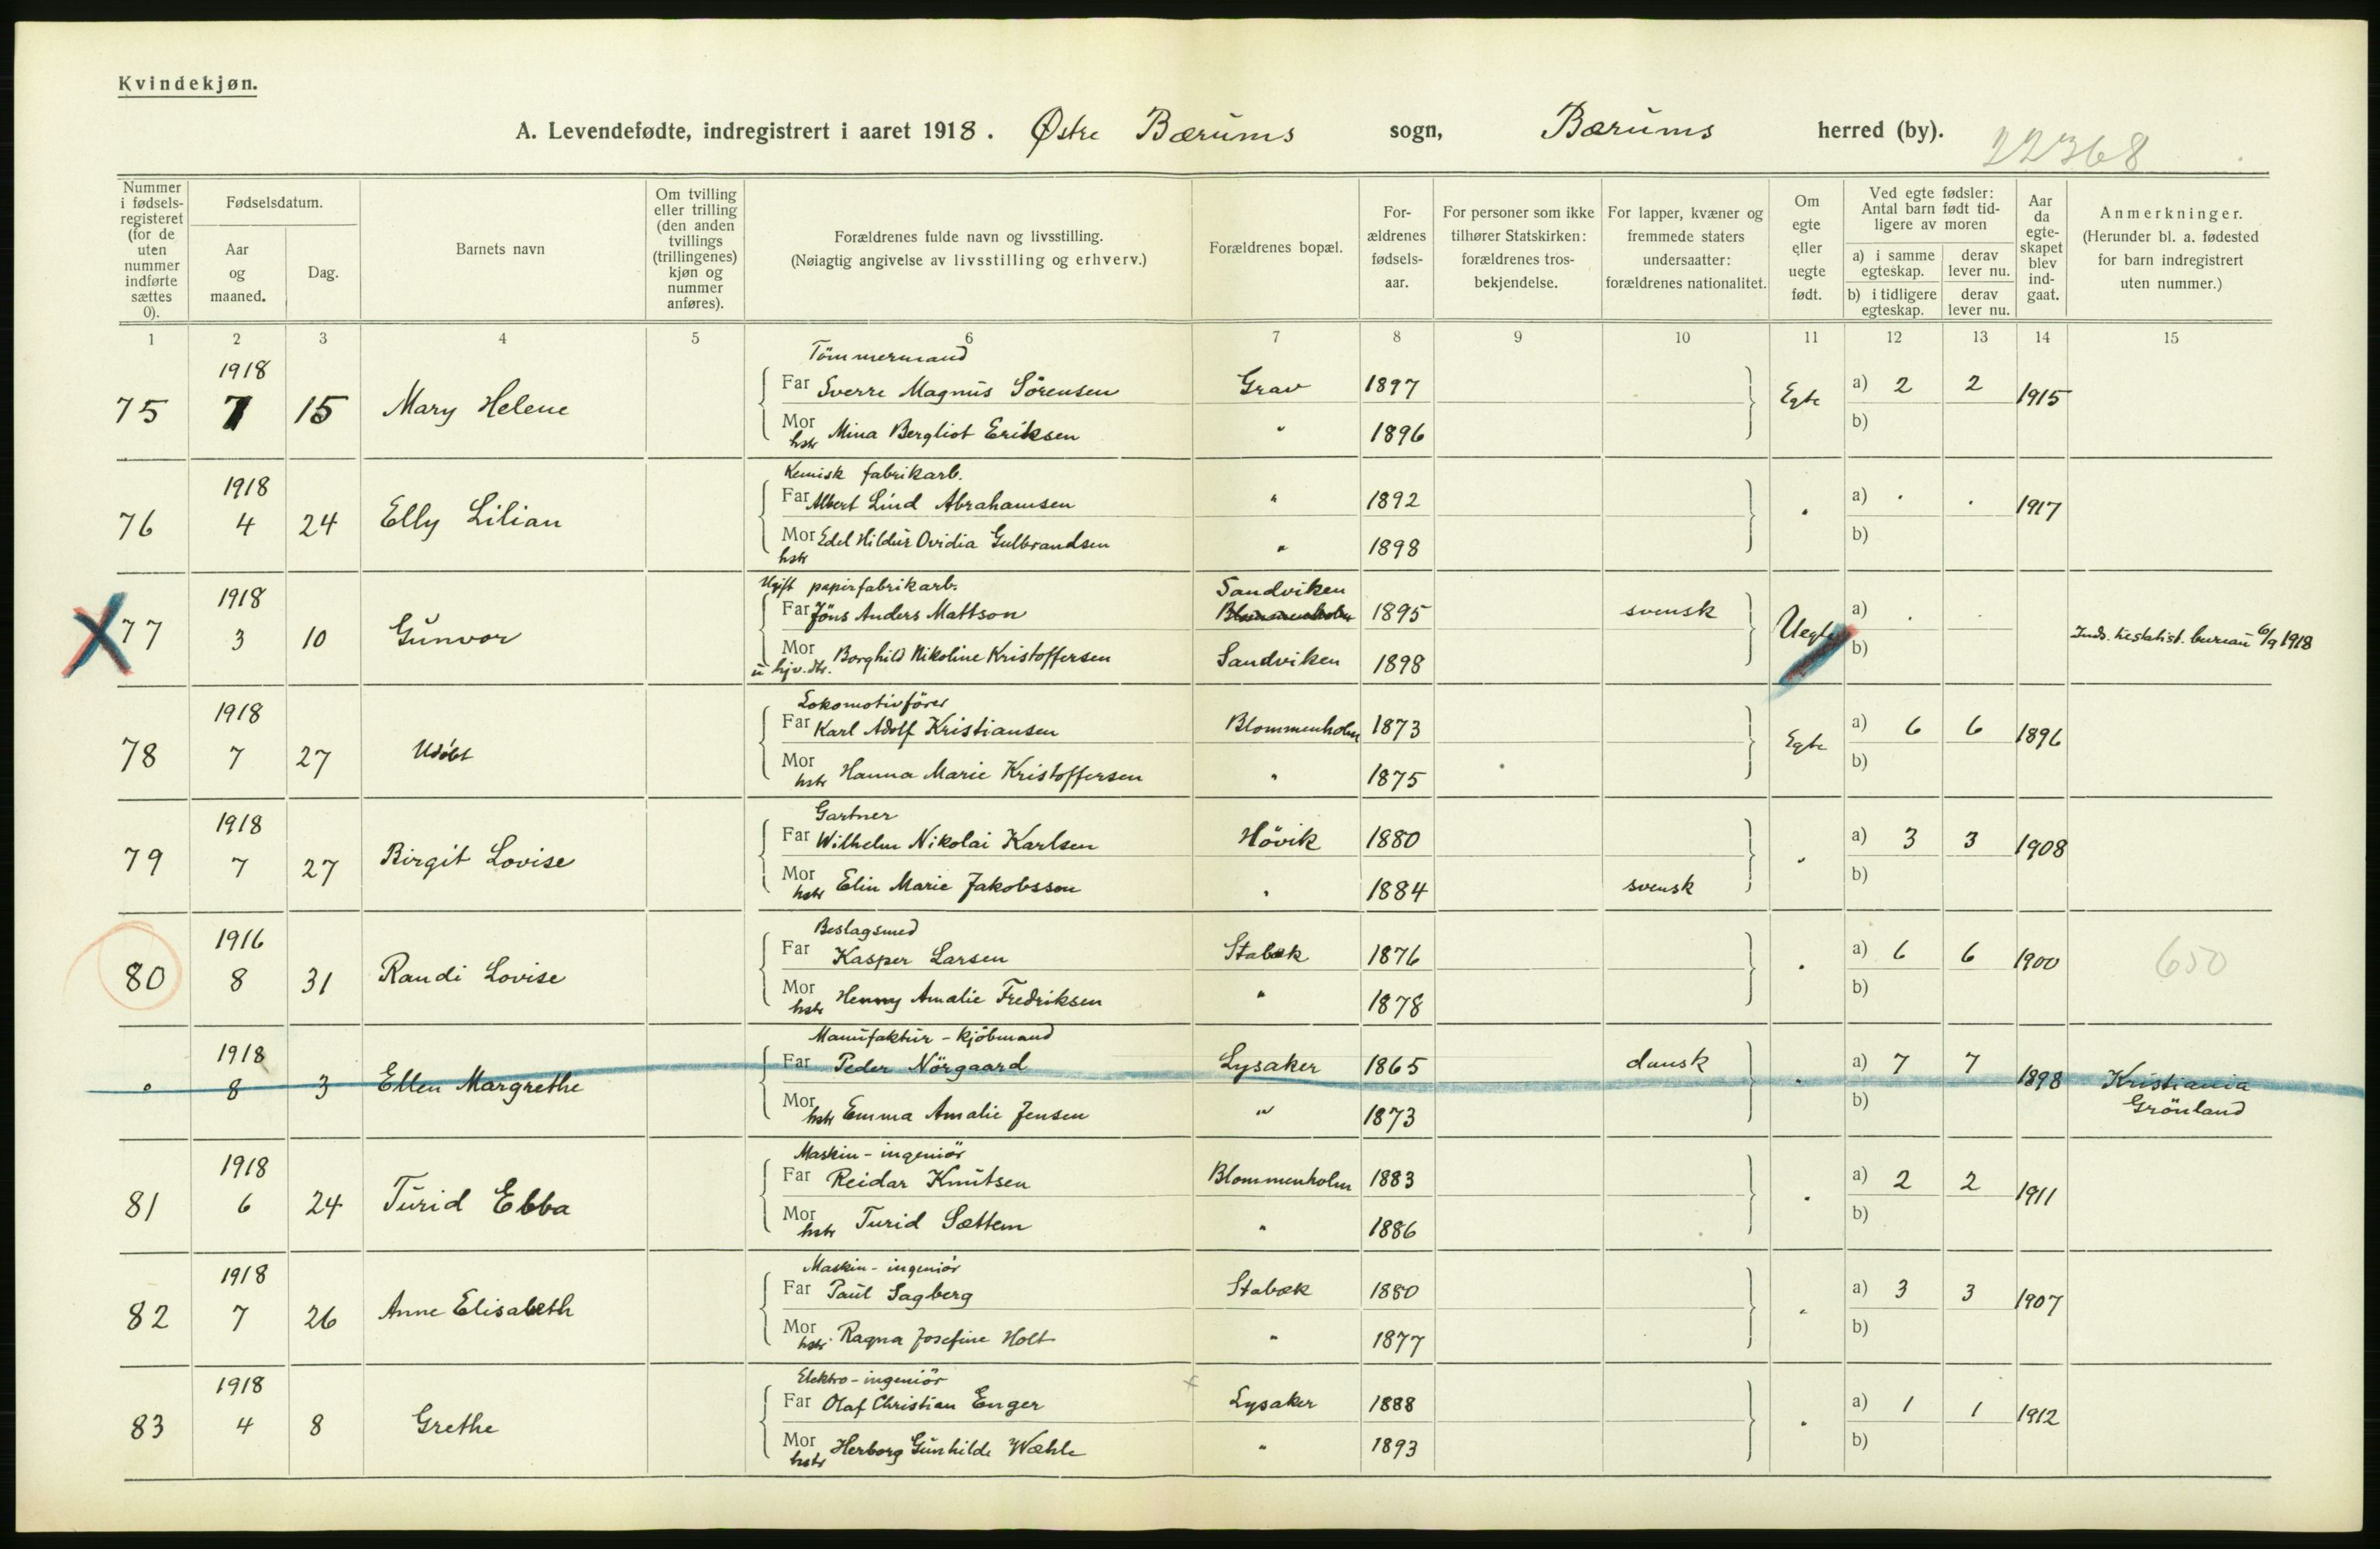 Kvindekjøn.
A. Levendefødte, indregistrert i aaret 1918. Østre Bærums sogn, Bærums herred (by). 22368
Nummer i fødsels-registeret (for de uten nummer indførte sættes 0).
Fødselsdatum.
Aar og maaned.
Dag.
Barnets navn
Om tvilling eller trilling (den anden tvillings (trillingenes) kjøn og nummer anføres).
Forældrenes fulde navn og livsstilling.
(Nøiagtig angivelse av livsstilling og erhverv.)
Forældrenes bopæl.
For-ældrenes fødsels-aar.
For personer som ikke tilhører Statskirken: forældrenes tros-bekjendelse.
For lapper, kvæner og fremmede staters undersaatter: forældrenes nationalitet.
Om egte eller uegte født.
Ved egte fødsler: Antal barn født tid-ligere av moren
a) i samme egteskap. derav lever nu.
b) i tidligere egteskap. derav lever nu.
Aar da egte-skapet blev ind-gaat.
Anmerkninger.
(Herunder bl. a. fødested for barn indregistrert uten nummer.)
1 2 3 4 5 6 7 8 9 10 11 12 13 14 15
1918 Tömmermand
75 7 15 Mary Helene Far Sverre Magnus Sörensen Grav 1897 Egte a) 2 2 1915
Mor hstr Mina Bergliot Eriksen " 1896 b)
1918 Kemisk fabrikarb.
76 4 24 Elly Lilian Far Albert Lind Abrahamsen " 1892 " a) . . 1917
Mor hstr Edel Hildur Ovidia Gulbrandsen " 1898 b)
1918 Ugift papirfabrikarb. Sandviken
X 77 3 10 Gunvor Far Jöns Anders Mattson Blommenholm 1895 svensk Uegte a) . .
Mor u hjv. dtr. Borghild Nikoline Kristoffersen Sandviken 1898 b) Inds. t. statist. bureau 6/9 1918
1918 Lokomotivförer
78 7 27 Udöbt Far Karl Adolf Kristiansen Blommenholm 1873 Egte a) 6 6 1896
Mor hstr Hanna Marie Kristoffersen " 1875 b)
1918 Gartner
79 7 27 Birgit Lovise Far Wilhelm Nikolai Karlsen Hövik 1880 " a) 3 3 1908
Mor hstr Elin Marie Jakobsson " 1884 svensk b)
1916 Beslagsmed
80 8 31 Randi Lovise Far Kasper Larsen Stabæk 1876 " a) 6 6 1900 650
Mor hstr Henny Amalie Fredriksen " 1878 b)
1918 Manufaktur - kjöbmand
0 8 3 Ellen Margrethe Far Peder Nörgaard Lysaker 1865 dansk " a) 7 7 1898 Kristiania
Mor hstr Emma Amalie Jensen " 1873 b) Grönland
1918 Maskin - ingeniör
81 6 24 Turid Ebba Far Reidar Knutsen Blommenholm 1883 " a) 2 2 1911
Mor hstr Turid Sættem " 1886 b)
1918 Maskin - ingeniör
82 7 26 Anne Elisabeth Far Paul Sagberg Stabæk 1880 " a) 3 3 1907
Mor hstr Ragna Josefine Holt " 1877 b)
1918 Elektro - ingeniör
83 4 8 Grethe Far Olaf Christian Enger Lysaker 1888 " a) 1 1 1912
Mor hstr Herborg Gunhilde Wæhle " 1893 b)